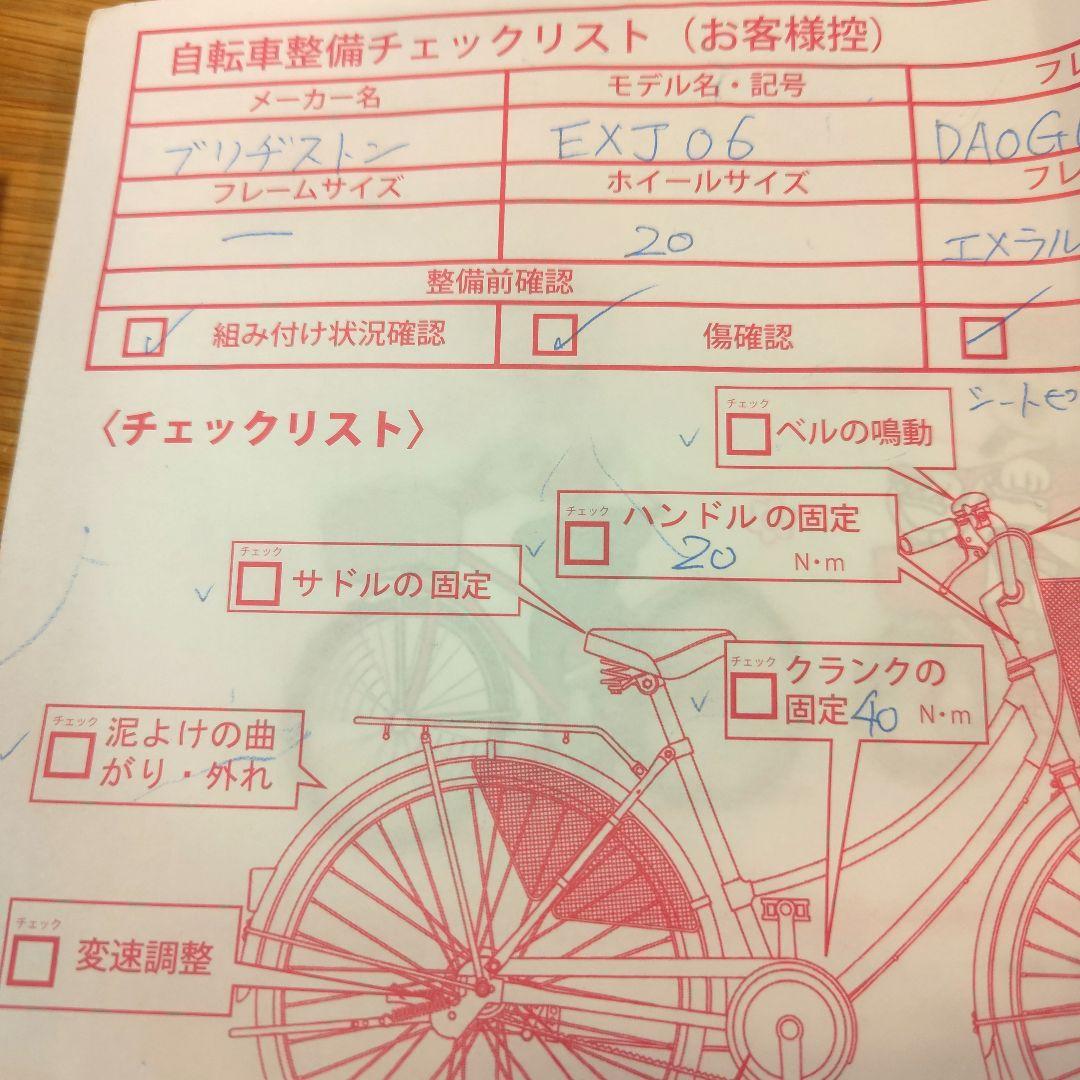 自転車整備チェックリスト（お客様控）
メーカー名 モデル名・記号 フレ
ブリヂストン EXJ06 DA0G
フレームサイズ ホイールサイズ フレ
— 20 エメラル
整備前確認
組み付け状況確認 傷確認
〈チェックリスト〉
シート
チェック
ベルの鳴動
チェック
ハンドルの固定
20 N・m
チェック
サドルの固定
チェック
クランクの
固定 40 N・m
チェック
泥よけの曲
がり・外れ
チェック
変速調整